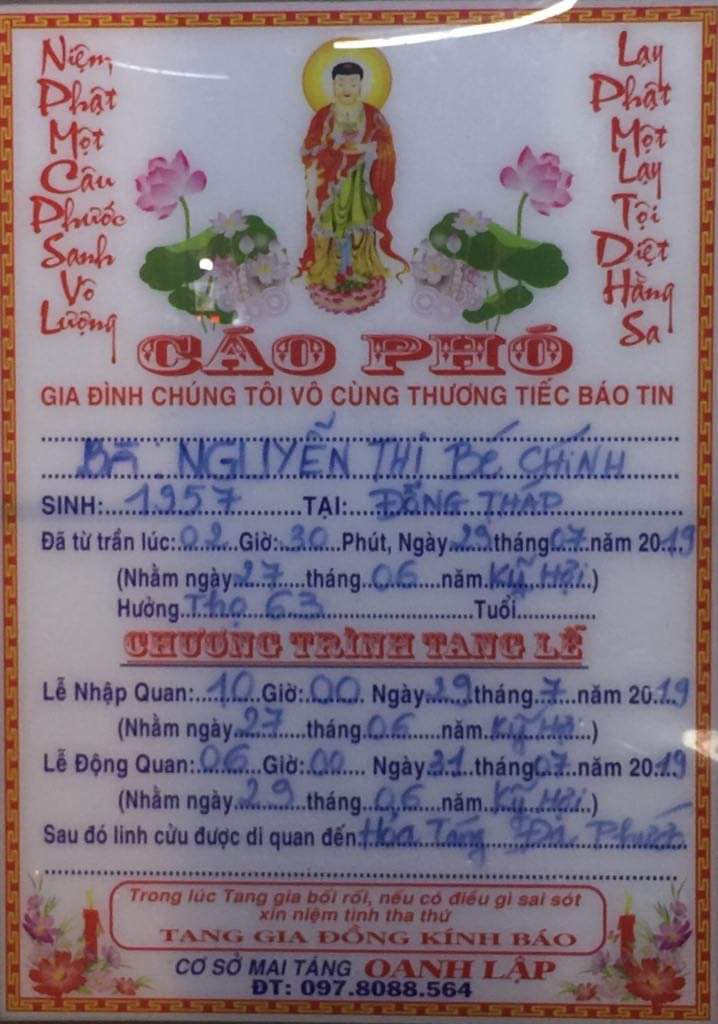 Niệm
Phật
Một
Câu
Phước
Sanh
Vô
Lượng
Lạy
Phật
Một
Lạy
Tội
Diệt
Hằng
Sa
CÁO PHÓ
GIA ĐÌNH CHÚNG TÔI VÔ CÙNG THƯƠNG TIẾC BÁO TIN
Bà: NGUYỄN THỊ BÉ CHÍNH
SINH: 1957 TẠI: ĐỒNG THÁP
Đã từ trần lúc: 02 Giờ: 30 Phút, Ngày 29 tháng 07 năm 2019
(Nhằm ngày 27 tháng 06 năm Kỹ Hợi)
Hưởng Thọ 63 Tuổi
CHƯƠNG TRÌNH TANG LỄ
Lễ Nhập Quan: 10 Giờ: 00 Ngày 29 tháng 7 năm 2019
(Nhằm ngày 27 tháng 06 năm Kỹ Hợi)
Lễ Động Quan: 06 Giờ: 00 Ngày 31 tháng 07 năm 2019
(Nhằm ngày 29 tháng 06 năm Kỹ Hợi)
Sau đó linh cửu được di quan đến Hỏa Táng Đa Phước
Trong lúc Tang gia bối rối, nếu có điều gì sai sót
xin niệm tình tha thứ
TANG GIA ĐỒNG KÍNH BÁO
CƠ SỞ MAI TÁNG OANH LẬP
ĐT: 097.8088.564